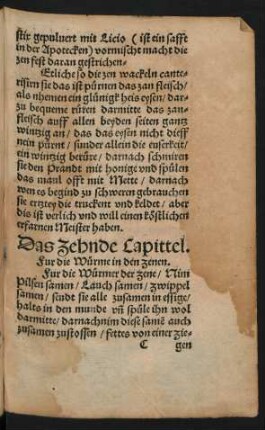 stix gepuluert mit Licio ( ist ein safft
in der Apotecken) vormischt macht die
zen fest daran gestrichen.
Etliche so die zen wackeln caute-
risirn sie das ist pürnen das zan fleisch/
als nhemen ein glünigk heis eysen/ dar-
zu bequeme rüren darmitte das zan-
fleisch auff allen beyden seiten gantz
wintzig an/ das das eysen nicht dieff
nein pürnt/ sunder allein die euserkeit/
ein wintzig berüre/ darnach schmiren
sie den Prandt mit honige vnd spülen
das maul offt mit Mette/ darnach
wen es begind zu schweren gebrauchen
sie ertztey die truckent vnd keldet/ aber
dis ist verlich vnd will einen köstlichen
erfarnen Meister haben.
Das Zehnde Capittel.
Fur die Würme in den zenen.
Fur die Würmer der zene/ Nim
Pilsen samen/ Lauch samen/ zwippel
samen/ sendt sie alle zusamen in essige/
halts in den munde vñ spüle ihn wol
darmitte/ darnach nim diese samẽ auch
zusamen zustossen/ fettes von einer zie-
C gen